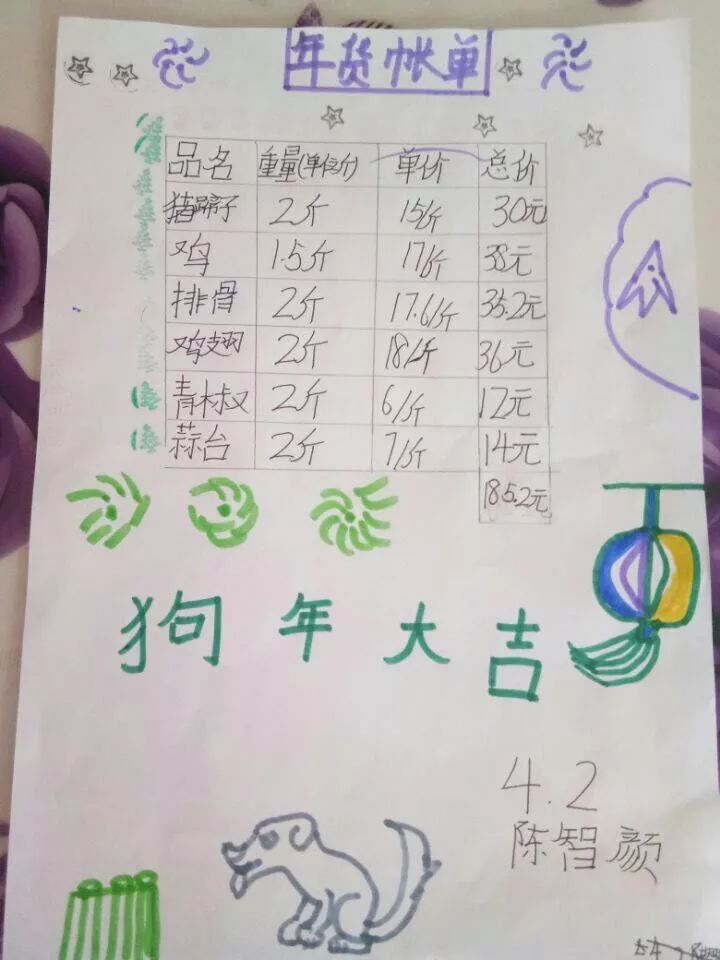 年货帐单
品名 重量(单位斤) 单价 总价
猪蹄子 2斤 15/斤 30元
鸡 1.5斤 17/斤 38元
排骨 2斤 17.6/斤 35.2元
鸡翅 2斤 18/斤 36元
青椒 2斤 6/斤 12元
蒜台 2斤 7/斤 14元
185.2元
狗年大吉
4.2
陈智颜